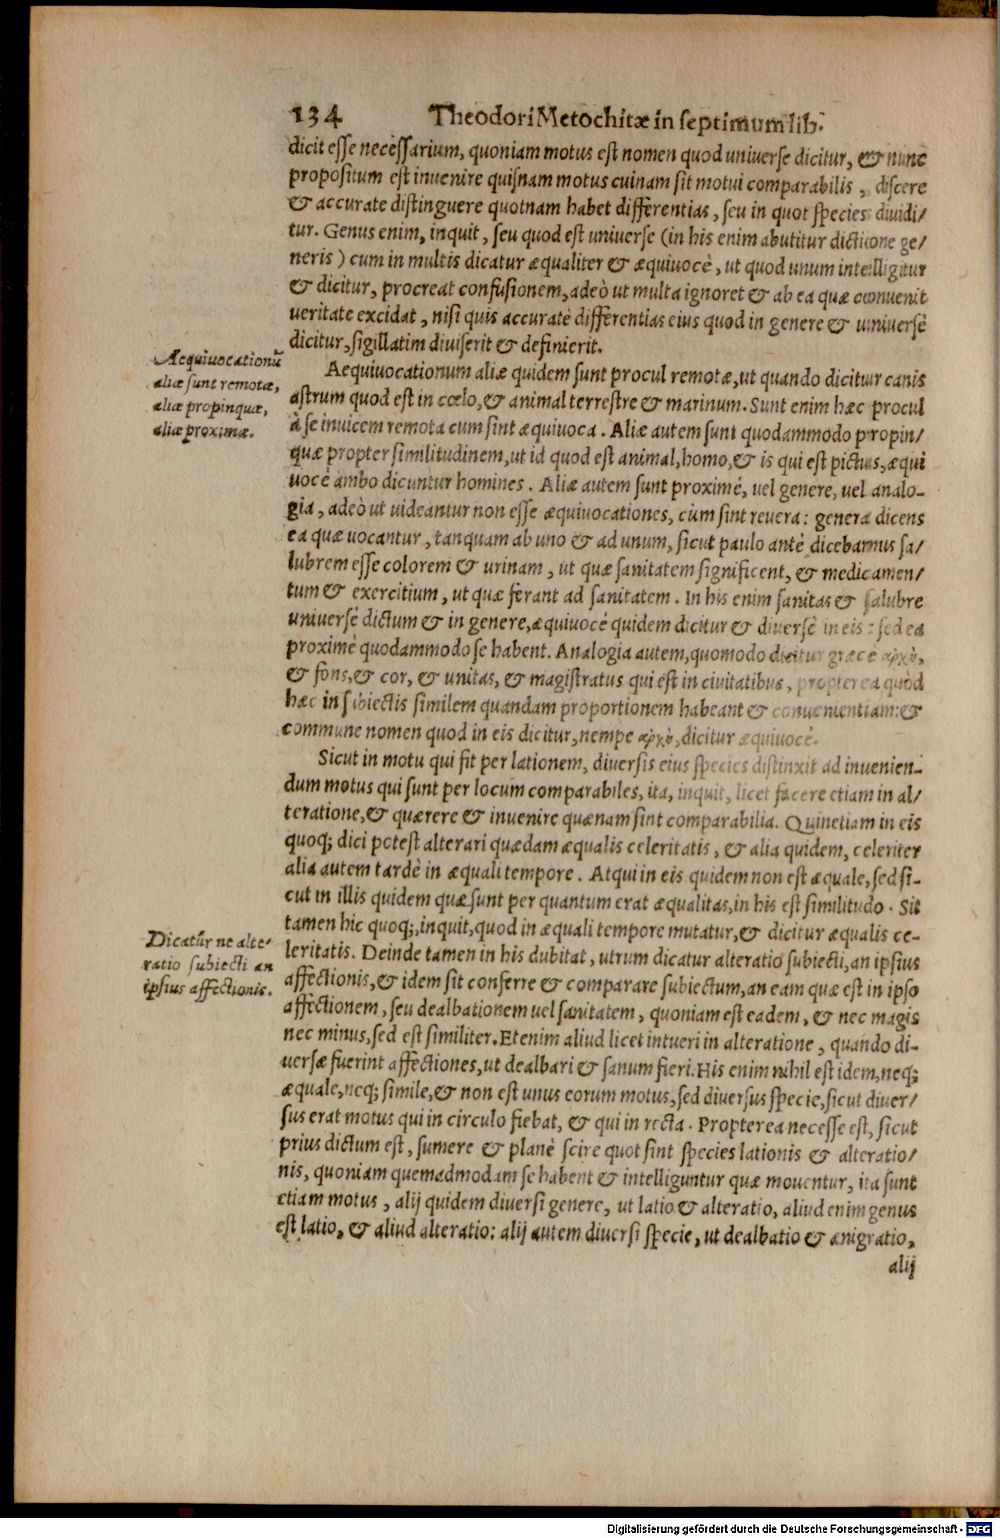 134 Theodori Metochitæ in septimum lib.
dicit esse necessarium, quoniam motus est nomen quod universe dicitur, & nunc
propositum est invenire quisnam motus cuinam sit motui comparabilis, discere
& accurate distinguere quotnam habet differentias, seu in quot species dividi/
tur. Genus enim, inquit, seu quod est universe (in his enim abutitur dictione ge/
neris) cum in multis dicatur æqualiter & æquivocè, ut quod unum intelligitur
& dicitur, procreat confusionem, adeò ut multa ignoret & ab ea quæ convenit
veritate excidat, nisi quis accuratè differentias eius quod in genere & universè
dicitur, sigillatim diviserit & definierit.
Aequivocationũ
aliæ sunt remotæ,
aliæ propinquæ,
aliæ proximæ.
Aequivocationum aliæ quidem sunt procul remotæ, ut quando dicitur canis
astrum quod est in cœlo, & animal terrestre & marinum. Sunt enim hæc procul
à se invicem remota cum sint æquivoca. Aliæ autem sunt quodammodo propin/
quæ propter similitudinem, ut id quod est animal, homo, & is qui est pictus, æqui
vocè ambo dicuntur homines. Aliæ autem sunt proximè, vel genere, vel analo-
gia, adeò ut videantur non esse æquivocationes, cùm sint revera: genera dicens
ea quæ vocantur, tanquam ab uno & ad unum, sicut paulo antè dicebamus sa/
lubrem esse colorem & urinam, ut quæ sanitatem significent, & medicamen/
tum & exercitium, ut quæ ferant ad sanitatem. In his enim sanitas & salubre
universè dictum & in genere, æquivocè quidem dicitur & diversè in eis: sed ea
proximè quodammodo se habent. Analogia autem, quomodo dicitur græcè ἀρχὴ,
& fons, & cor, & unitas, & magistratus qui est in civitatibus, propterea quod
hæc in subiectis similem quandam proportionem habeant & convenientiam: &
commune nomen quod in eis dicitur, nempe ἀρχὴ, dicitur æquivocè.
Sicut in motu qui fit per lationem, diversis eius species distinxit ad invenien-
dum motus qui sunt per locum comparabiles, ita, inquit, licet facere etiam in al/
teratione, & quærere & invenire quænam sint comparabilia. Quinetiam in eis
quoq; dici potest alterari quædam æqualis celeritatis, & alia quidem, celeriter
alia autem tardè in æquali tempore. Atqui in eis quidem non est æquale, sed si-
cut in illis quidem quæ sunt per quantum erat æqualitas, in his est similitudo. Sit
tamen hic quoq;, inquit, quod in æquali tempore mutatur, & dicitur æqualis ce-
Dicatur ne alte/
ratio subiecti an
ipsius affectionis.
leritatis. Deinde tamen in his dubitat, utrum dicatur alteratio subiecti, an ipsius
affectionis, & idem sit conferre & comparare subiectum, an eam quæ est in ipso
affectionem, seu dealbationem vel sanitatem, quoniam est eadem, & nec magis
nec minus, sed est similiter. Etenim aliud licet intueri in alteratione, quando di-
versæ fuerint affectiones, ut dealbari & sanum fieri. His enim nihil est idem, neq;
æquale, neq; simile, & non est unus eorum motus, sed diversus specie, sicut diver/
sus erat motus qui in circulo fiebat, & qui in recta. Propterea necesse est, sicut
prius dictum est, sumere & planè scire quot sint species lationis & alteratio/
nis, quoniam quemadmodam se habent & intelliguntur quæ moventur, ita sunt
etiam motus, alij quidem diversi genere, ut latio & alteratio, aliud enim genus
est latio, & aliud alteratio: alij autem diversi specie, ut dealbatio & ænigratio,
alij
Digitalisierung gefördert durch die Deutsche Forschungsgemeinschaft - DFG